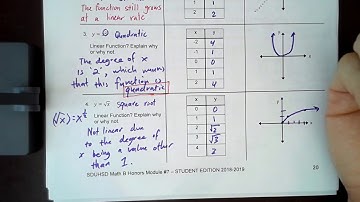 The function still grows
at a linear rate
1
2
3. y = x² Quadratic
Linear Function? Explain why
or why not.
The degree of x
is "2", which means
that this function is
quadratic
x y
-2 4
-1 1
0 0
1 1
2 4
4. y = √x Square root
(√x) = x^½
Linear Function? Explain why
or why not.
Not linear due
to the degree of
x being a value other
than 1.
x y
0 0
1 1
2 √2
3 √3
4 2
SDUHSD Math B Honors Module #7 – STUDENT EDITION 2018-2019
20